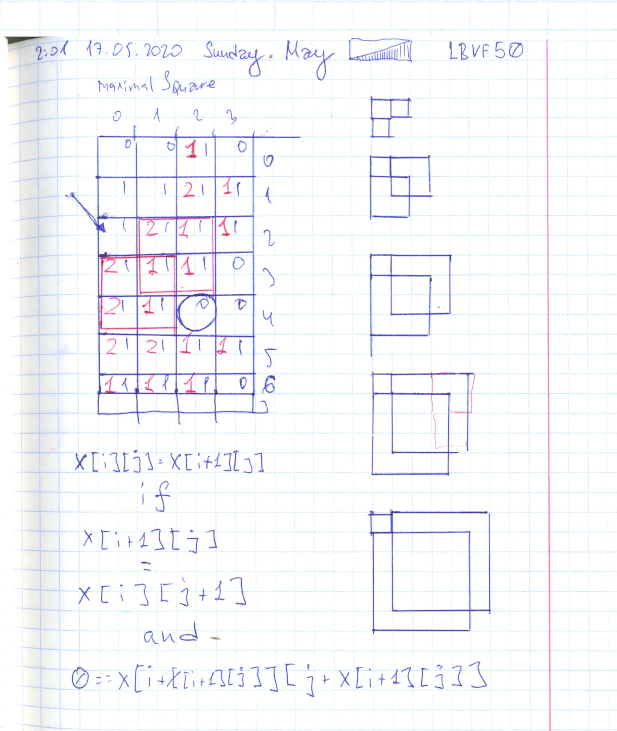 2:01 17.05.2020 Sunday. May LBVF50
Maximal Square
0 1 2 3
0 0 1 1 0 0
1 1 2 1 1 1 1
1 2 1 1 1 1 1 2
2 1 1 1 1 1 0 3
2 1 1 1 0 0 4
2 1 2 1 1 1 1 1 5
1 1 1 1 1 1 0 6
x[i][j]=x[i+1][j]
if
x[i+1][j]
=
x[i][j+1]
and -
0==x[i+x[i+1][j]][j+x[i+1][j]]